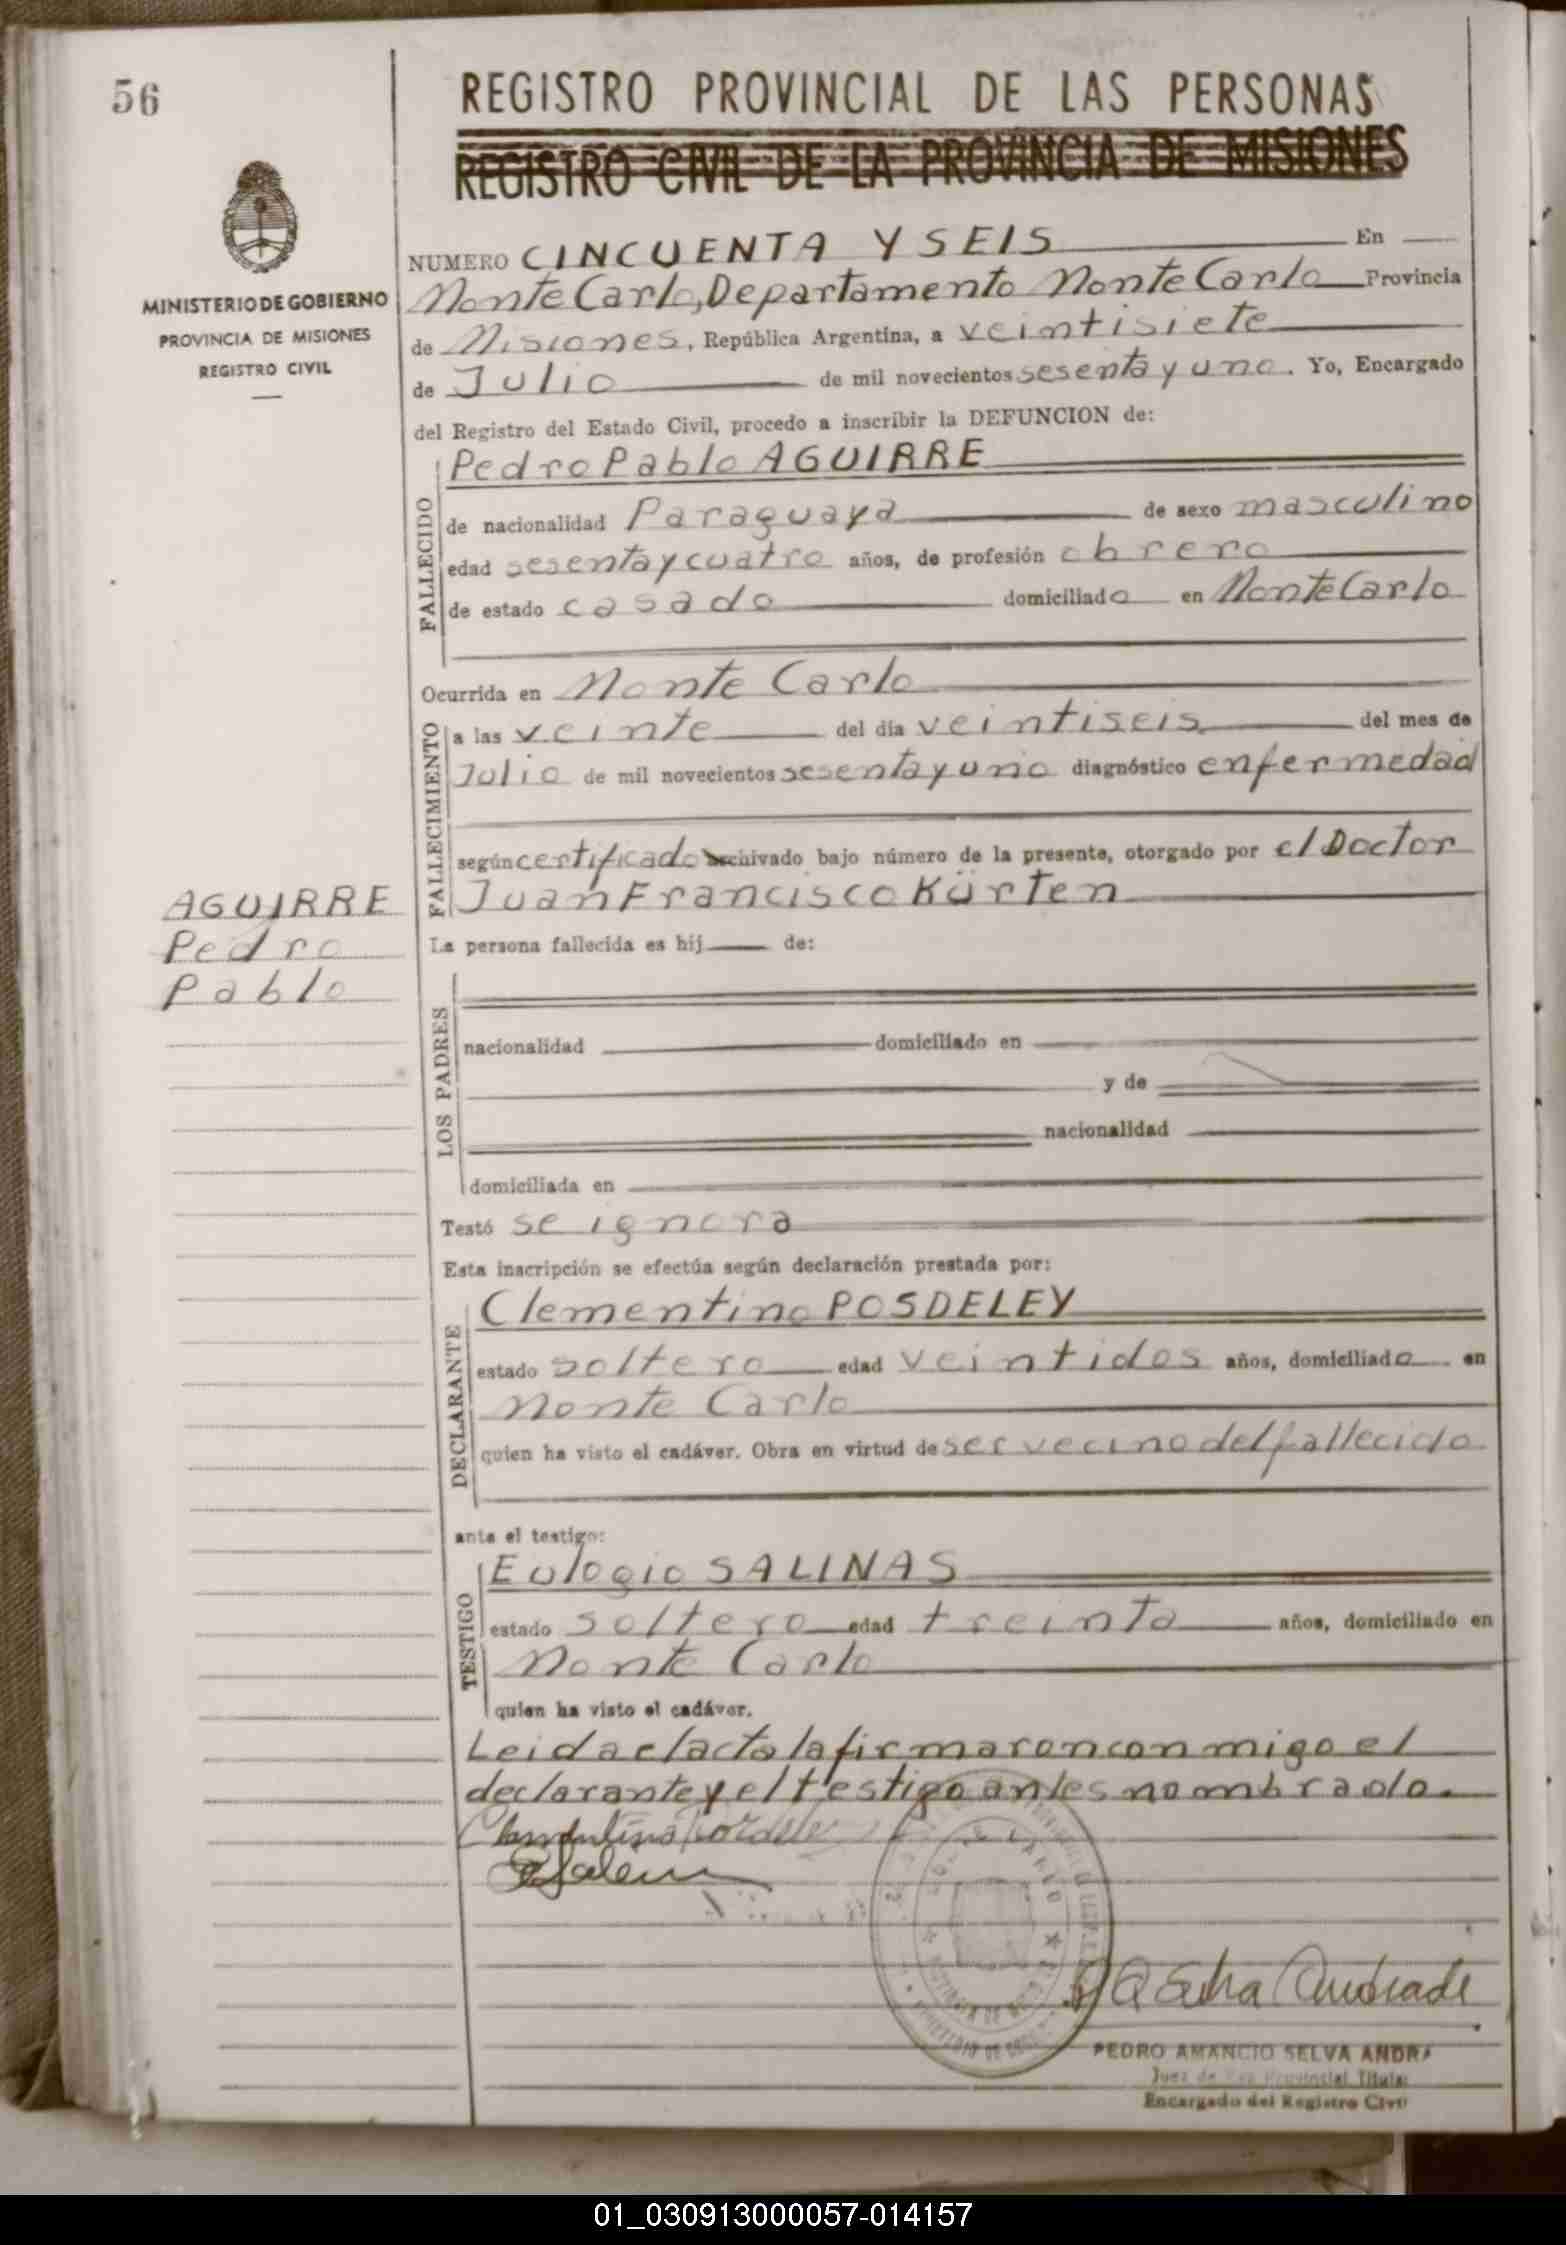 56
REGISTRO PROVINCIAL DE LAS PERSONAS
REGISTRO CIVIL DE LA PROVINCIA DE MISIONES
MINISTERIO DE GOBIERNO
PROVINCIA DE MISIONES
REGISTRO CIVIL
NUMERO CINCUENTA Y SEIS En
Monte Carlo, Departamento Monte Carlo Provincia
de Misiones, República Argentina, a veintisiete
de Julio de mil novecientos sesenta y uno. Yo, Encargado
del Registro del Estado Civil, procedo a inscribir la DEFUNCION de:
FALLECIDO
Pedro Pablo AGUIRRE
de nacionalidad Paraguaya de sexo masculino
edad sesenta y cuatro años, de profesión obrero
de estado casado domiciliado en Monte Carlo
Ocurrida en Monte Carlo
FALLECIMIENTO
a las veinte del día veintiseis del mes de
Julio de mil novecientos sesenta y uno diagnóstico enfermedad
según certificado archivado bajo número de la presente, otorgado por el Doctor
Juan Francisco Kürten
AGUIRRE
Pedro
Pablo
La persona fallecida es hij de:
LOS PADRES
nacionalidad domiciliado en
y de
nacionalidad
domiciliada en
Testó se ignora
Esta inscripción se efectúa según declaración prestada por:
DECLARANTE
Clementino POSDELEY
estado soltero edad veintidos años, domiciliado en
Monte Carlo
quien ha visto el cadáver. Obra en virtud de ser vecino del fallecido
ante el testigo:
TESTIGO
Eulogio SALINAS
estado soltero edad treinta años, domiciliado en
Monte Carlo
quien ha visto el cadáver.
Leida el acta la firmaron conmigo el
declarante y el testigo antes nombrado.
PEDRO AMANCIO SELVA ANDRA
Juez de Paz Provincial Titular
Encargado del Registro Civil
01_030913000057-014157